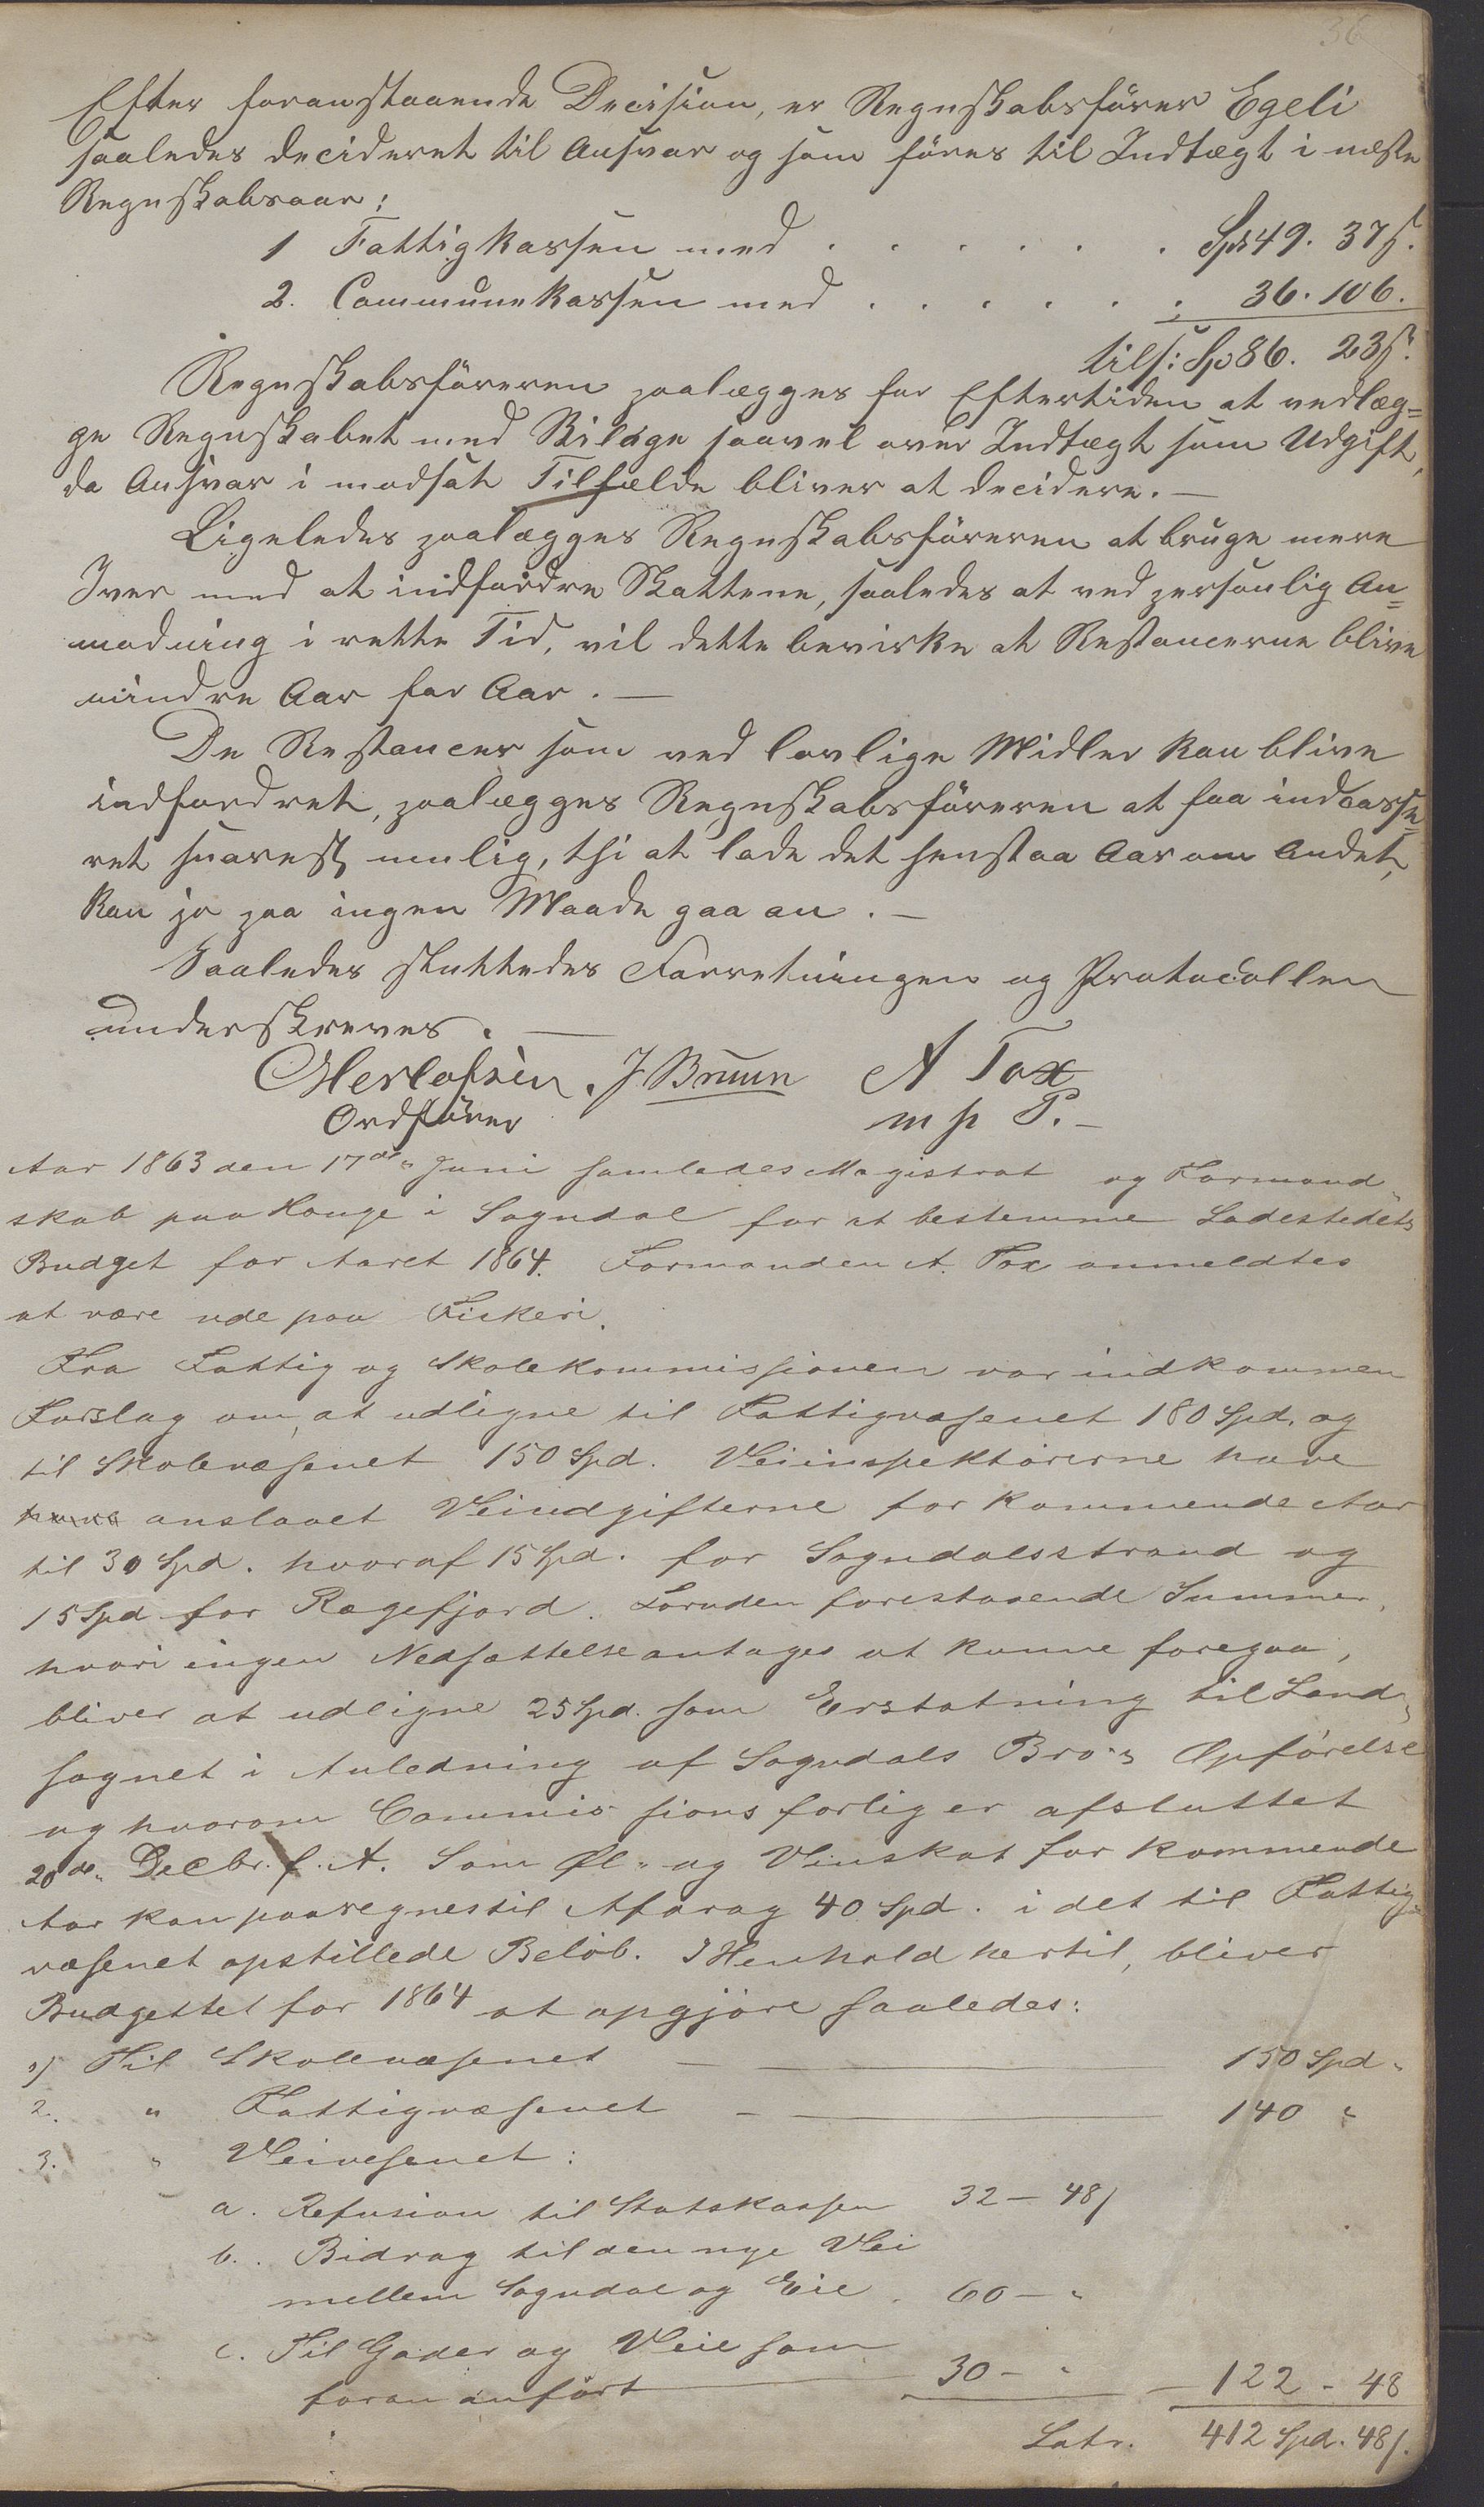 36
Efter foranstaaende Decision, er Regnskabsfører Egeli
saaledes decideret til Ansvar og som føres til Indtægt i næste
Regnskabsaar:
1 Fattigkassen med . . . . . . Spd 49. 37 s.
2. Communekassen med . . . . . . 36. 106.
tils: Sp 86. 23 s.
Regnskabsføreren paalægges for Eftertiden at vedlæg=
ge Regnskabet med Bilage saavel over Indtægt som Udgift,
da Ansvar i modsat Tilfælde bliver at decidere. —
Ligeledes paalægges Regnskabsføreren at bruge mere
Iver med at indfordre Skattene, saaledes at ved personlig An=
modning i rette Tid, vil dette bevirke at Restancerne blive
mindre Aar for Aar. —
De Restancer som ved lovlige Midler kan blive
indfordret, paalægges Regnskabsføreren at faa indcasse=
ret snarest mulig, thi at lade det henstaa Aar om Andet,
kan jo paa ingen Maade gaa an. —
Saaledes sluttedes Forretningen og Protocollen
underskreves. —
Herlofsen. J. Bruun A Tox
Ordfører m p P. —
Aar 1863 den 17de Juni samledes Magistrat og Formand
skab paa Hauge i Sogndal for at bestemme Ladestedets
Budget for Aaret 1864. Formanden A. Tox anmeldtes
at være ude paa Fiskeri.
Fra Fattig og Skolekommissionen var indkommen
Forslag om, at udligne til Fattigvæsenet 180 Spd. og
til Skolevæsenet 150 Spd. Veiinspektørerne have
have anslaaet Veiudgifterne for kommende Aar
til 30 Spd. hvoraf 15 Spd. for Sogndalsstrand og
15 Spd for Rægefjord. Foruden forestaaende Summer,
hvori ingen Nedsættelse antages at kunne foregaa,
bliver at udligne 25 Spd. som Erstatning til Land-
sognet i Anledning af Sogndals Bro's Opførelse
og hvorom Commissionsforlig er afsluttet
20de Decbr. f. A. Som Øl- og Vinskat for kommende
Aar kan paaregnes til Afdrag 40 Spd. i det til Fattig-
væsenet opstillede Beløb. I Henhold hertil, bliver
Budgettet for 1864 at opgjøre saaledes:
1) Til Skolevæsenet — 150 Spd "
2. " Fattigvæsenet — 140 "
3. " Veivesenet:
a. Refusion til Statskassen 32 – 48 s
b. Bidrag til den nye Vei
mellem Sogndal og Eie 60 – "
c. Til Gader og Veie som
foran anført 30 – " — 122 - 48
Latr. 412 Spd. 48 s.